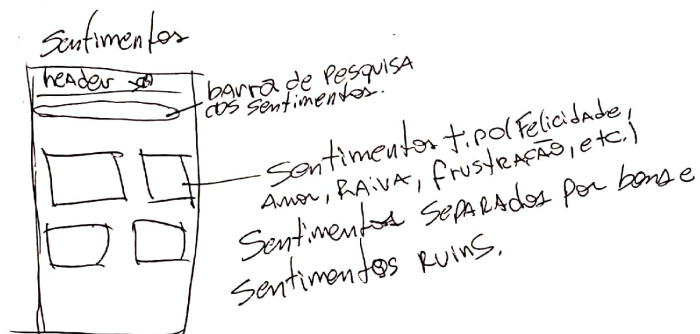 Sentimentos
header
barra de Pesquisa
dos sentimentos.
Sentimentos tipo(Felicidade,
Amor, RAIVA, frustRAÇÃO, etc.)
Sentimentos SEPARAdos por bons e
Sentimentos RUINS.